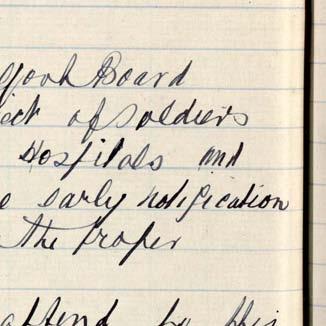 York Board
of soldiers
Hospitals and
early notification
the proper
attend to this